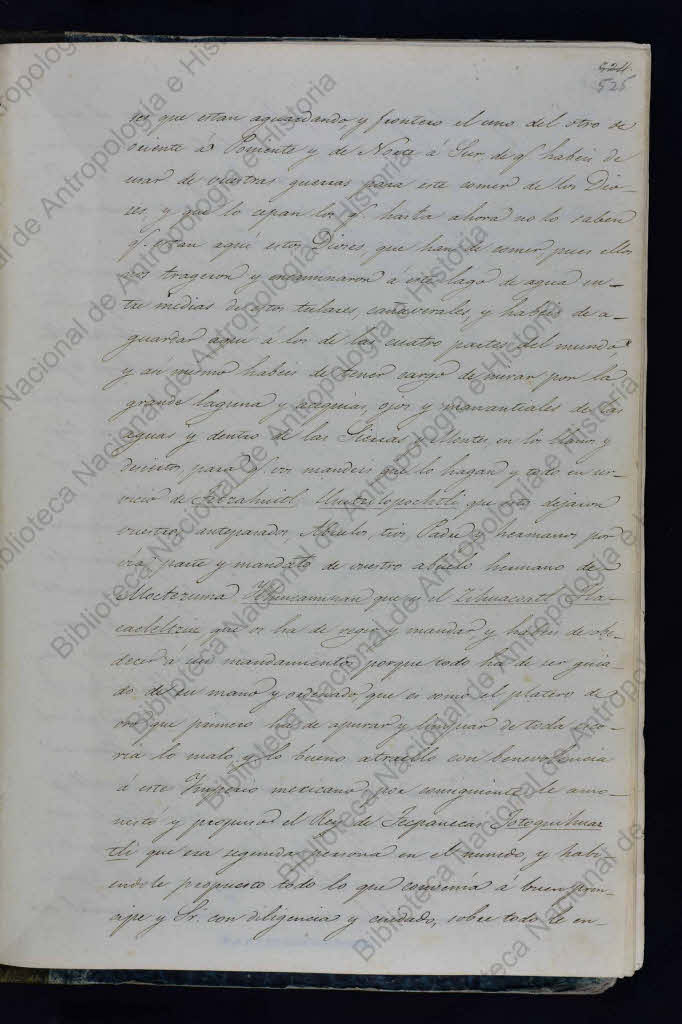 524.
525
ses que estan aguardando, y frontero el uno del otro de
oriente á Poniente y de Norte á Sur, de q.e habeis de
usar de vuestras guerras para este comer de los Dio-
ses, y que lo sepan los q.e hasta ahora no lo saben
q.e estan aqui estos Dioses, que han de comer, pues ellos
nos trageron y encaminaron á este lago de agua en-
tre medias de estos tulares, cañaverales, y habeis de a-
guardar aqui á los de las cuatro partes del mundo,
y asi mismo habeis de tener cargo de mirar por la
grande laguna y acequias, ojos y manantiales de las
aguas y dentro de las Sierras, y Montes, en los llanos, y
desiertos, para q.e os mandeis que lo hagan y todo en ser-
vicio de Tetzahuitl Huitzilopochtli que nos dejaron
vuestros antepasados, Abuelos, tios, Padre y hermanos por
parte y mandato de vuestro abuelo hermano de
Moctezuma que y el Zihuacoatl Tla-
caeleltzin que os ha de regir, y mandar, y habeis de obe-
decer á su mandamiento, porque todo ha de ser guia-
do de su mano y ordenado, que es como el platero de
oro que primero ha de apurar y limpiar de toda esco-
ria lo malo, y lo bueno atraello con benevolencia
á este Imperio mexicano, por consiguiente le amo-
nestó y propuso el Rey de Tecpanecas Totoquihuaz
tli que era segunda persona en el mundo, y habi-
endole propuesto todo lo que convenia á buen prin-
cipe y Sr. con diligencia y cuidado, sobre todo le en-
Biblioteca Nacional de Antropología e Historia